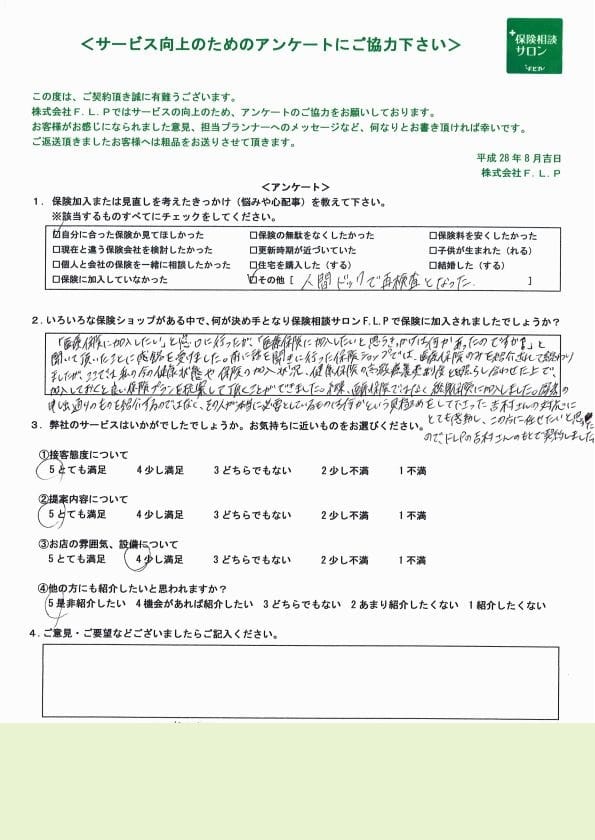 ＜サービス向上のためのアンケートにご協力下さい＞
保険相談
サロン
この度は、ご契約頂き誠に有難うございます。
株式会社Ｆ．Ｌ．Ｐではサービスの向上のため、アンケートのご協力をお願いしております。
お客様がお感じになられました意見、担当プランナーへのメッセージなど、何なりとお書き頂ければ幸いです。
ご返送頂きましたお客様へは粗品をお送りさせて頂きます。
平成28年8月吉日
株式会社Ｆ．Ｌ．Ｐ
＜アンケート＞
１．保険加入または見直しを考えたきっかけ（悩みや心配事）を教えて下さい。
※該当するものすべてにチェックをしてください。
☑自分に合った保険か見てほしかった □保険の無駄をなくしたかった □保険料を安くしたかった
□現在と違う保険会社を検討したかった □更新時期が近づいていた □子供が生まれた（れる）
□個人と会社の保険を一緒に相談したかった □住宅を購入した（する） □結婚した（する）
□保険に加入していなかった ☑その他［ 人間ドックで再検査となった. ］
２．いろいろな保険ショップがある中で、何が決め手となり保険相談サロンＦ．Ｌ．Ｐで保険に加入されましたでしょうか？
「医療保険に加入したい」と感じに行ったが、「医療保険に加入したいと思うきっかけは何かあったのですか？」と
聞いて頂いたことに感銘を受けました。前に話を聞きに行った保険ショップでは、医療保険のみを紹介されて終わり
ましたが、ここでは私の方の健康状態や保険の加入状況、健康保険の を照らし合わせた上で、
加入しておくと良い保険プランを提案して頂くことができました。 、医療保険ではなく 保険に加入しました。
申し出通りのものを紹介するのではなく、その人が本当に必要としているものは何かという見極めをして下さった吉村さんの対応に
とても感動し、この方に任せたいと思った
ので、F.L.Pの吉村さんのもとで契約しました
３．弊社のサービスはいかがでしたでしょうか。お気持ちに近いものをお選びください。
①接客態度について
５とても満足 ４少し満足 ３どちらでもない ２少し不満 １不満
②提案内容について
５とても満足 ４少し満足 ３どちらでもない ２少し不満 １不満
③お店の雰囲気、設備について
５とても満足 ４少し満足 ３どちらでもない ２少し不満 １不満
④他の方にも紹介したいと思われますか？
５是非紹介したい ４機会があれば紹介したい ３どちらでもない ２あまり紹介したくない １紹介したくない
４．ご意見・ご要望などございましたらご記入ください。